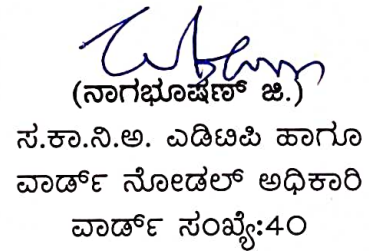 (ನಾಗಭೂಷಣ್ ಜಿ.)
ಸ.ಕಾ.ನಿ.ಅ. ಎಡಿಟಿಪಿ ಹಾಗೂ
ವಾರ್ಡ್ ನೋಡಲ್ ಅಧಿಕಾರಿ
ವಾರ್ಡ್ ಸಂಖ್ಯೆ:40